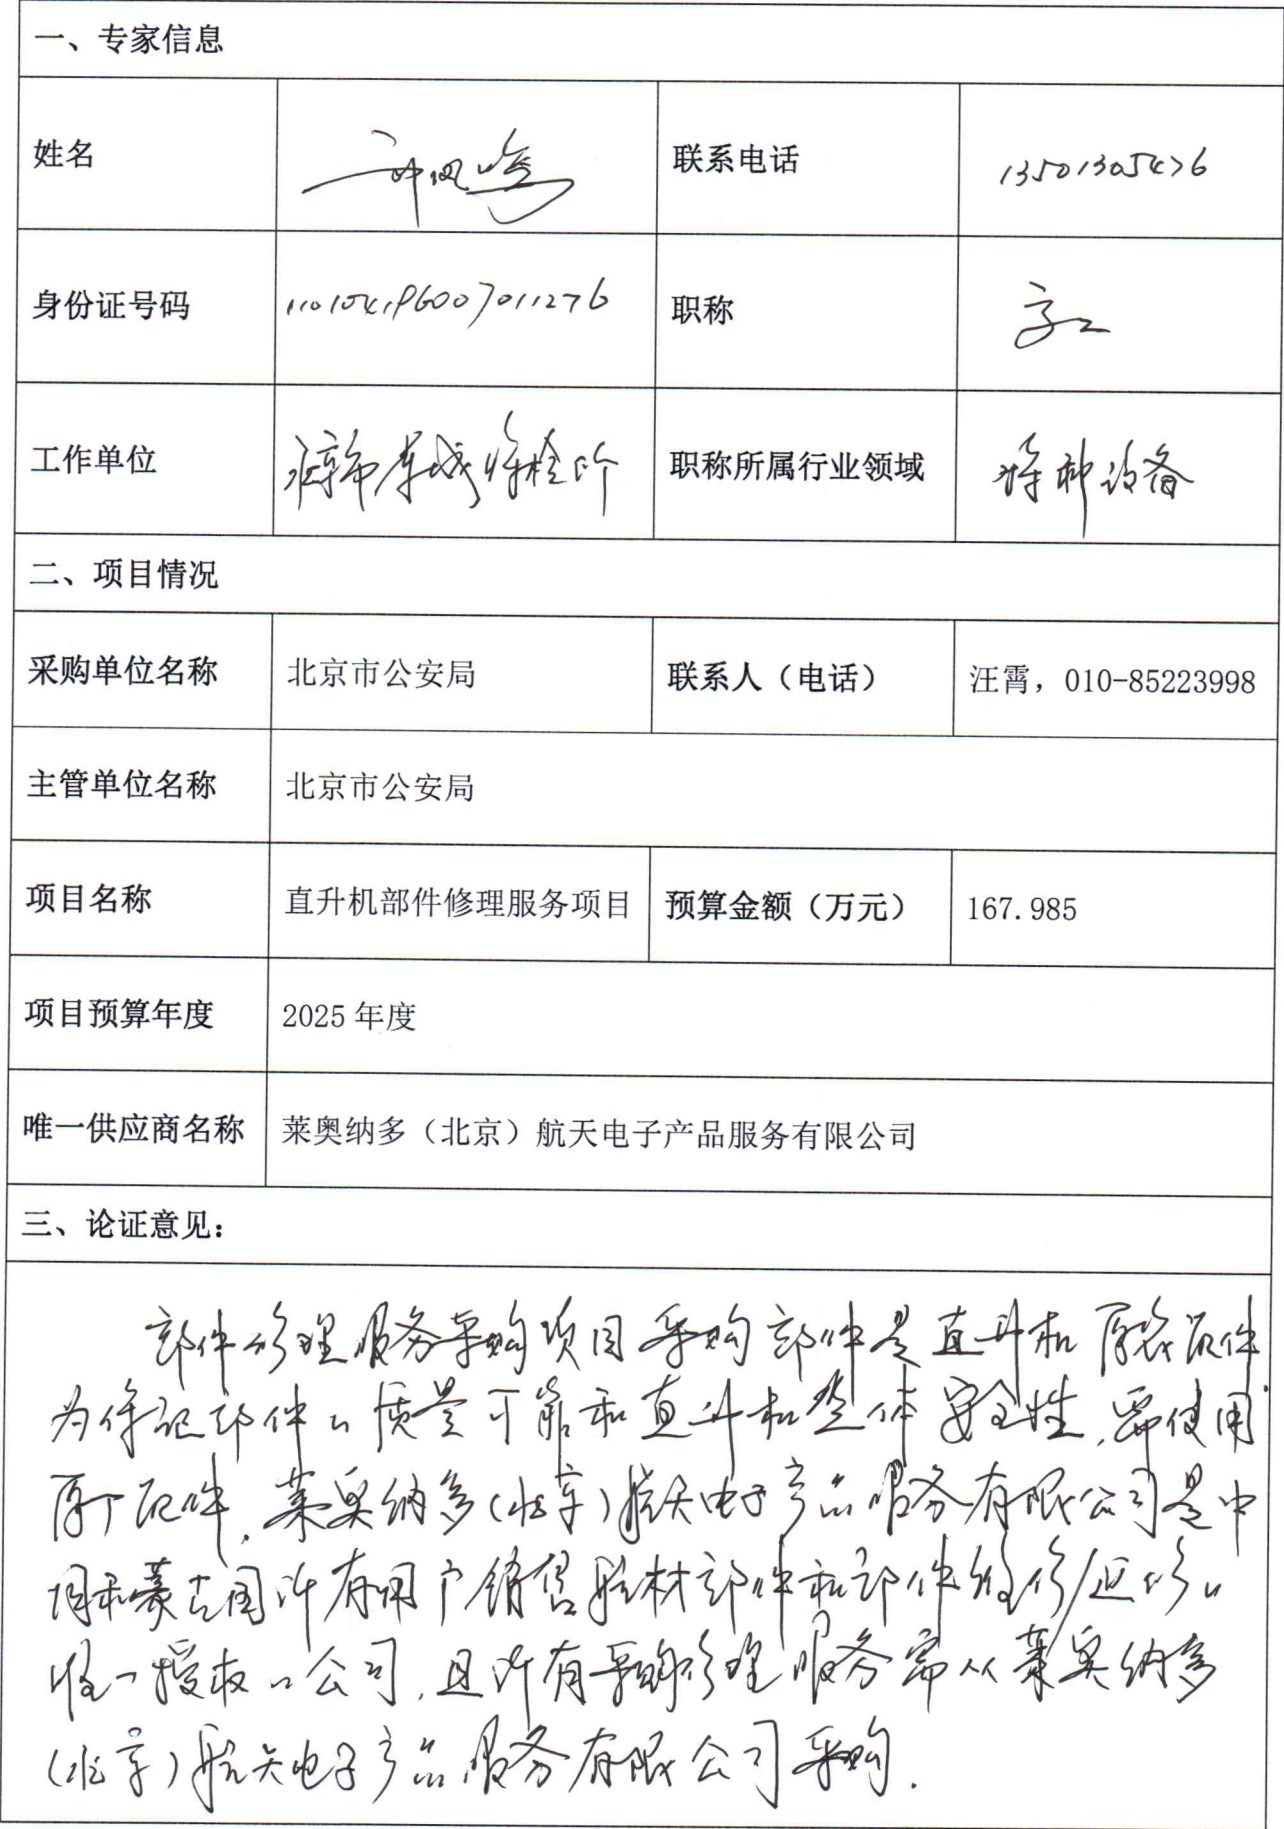 一、专家信息
姓名
联系电话 13501305476
身份证号码 110104196007011276 职称 高工
工作单位 北京市东城特检所 职称所属行业领域 特种设备
二、项目情况
采购单位名称 北京市公安局 联系人（电话） 汪霄，010-85223998
主管单位名称 北京市公安局
项目名称 直升机部件修理服务项目 预算金额（万元） 167.985
项目预算年度 2025 年度
唯一供应商名称 莱奥纳多（北京）航天电子产品服务有限公司
三、论证意见：
部件修理服务采购项目采购部件是直升机原装配件
为保证部件的质量可靠和直升机整体安全性，需使用
原厂配件，莱奥纳多（北京）航天电子产品服务有限公司是中
国和蒙古国所有用户销售航材部件和部件维修/返修的
唯一授权的公司，且所有采购修理服务需从莱奥纳多
（北京）航天电子产品服务有限公司采购.